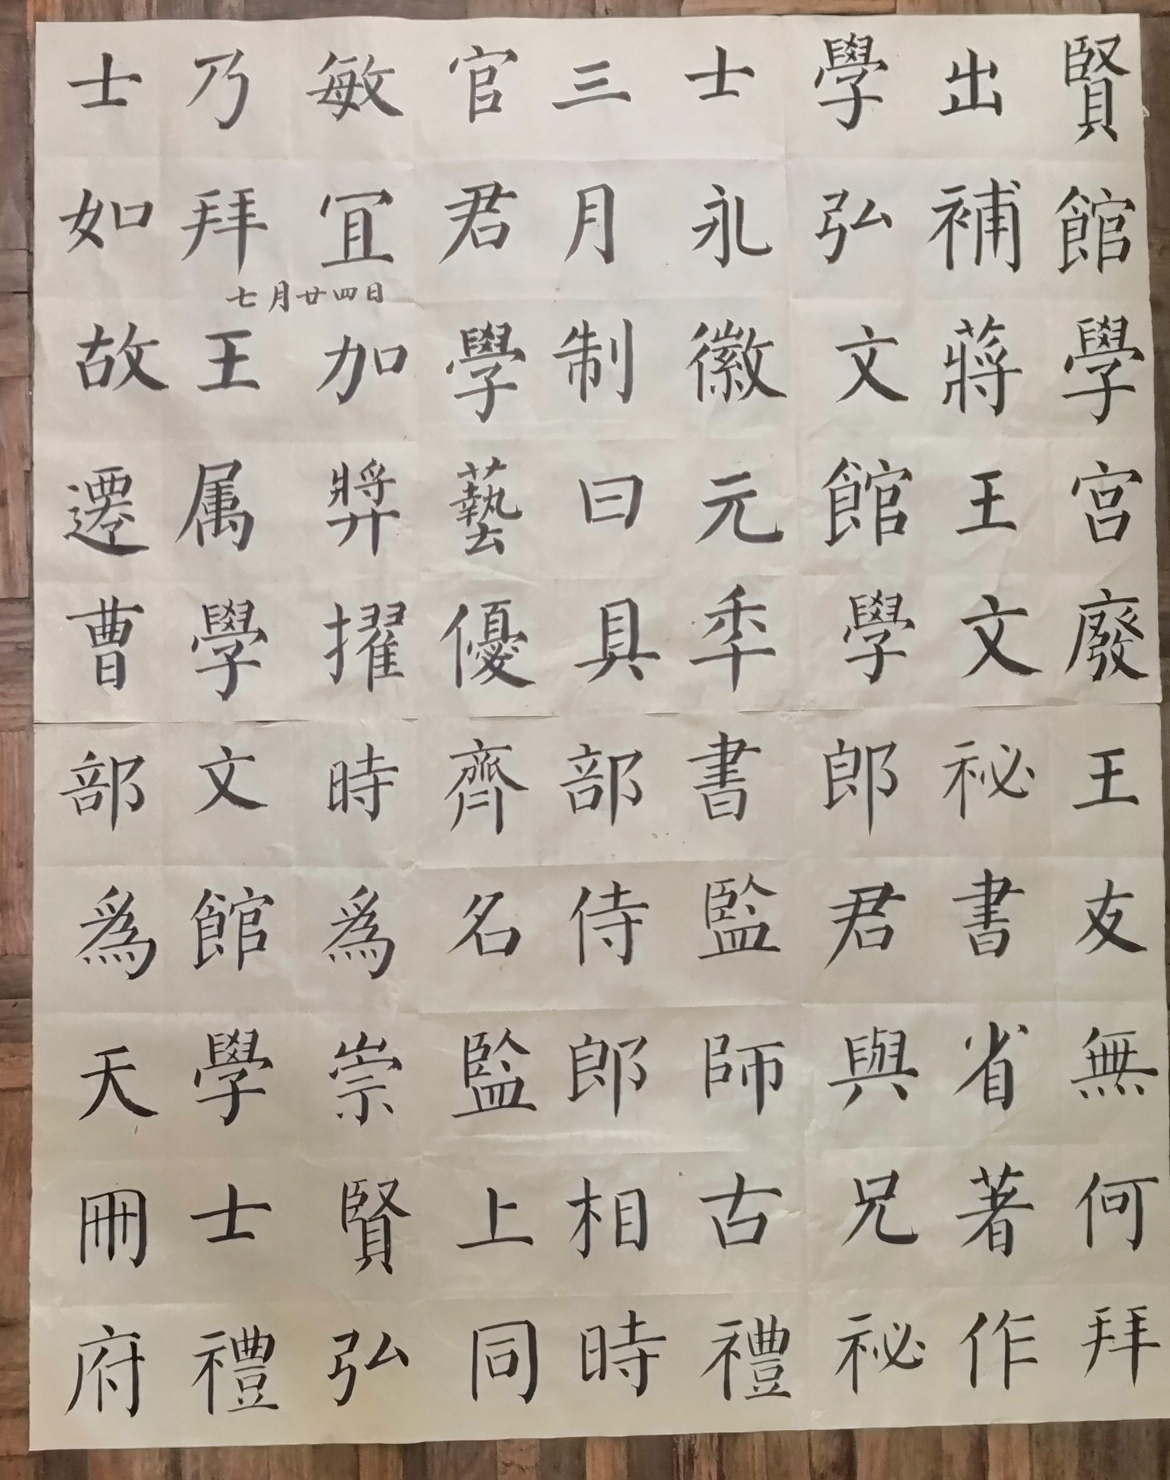 賢館學宮廢王友無何拜
出補蔣王文祕書省著作
學弘文館學郎君與兄祕
士永徽元秊書監師古禮
三月制曰具部侍郎相時
官君學藝優齊名監上同
敏冝加弉擢時為崇賢弘
乃拜王属學文館學士禮
士如故遷曹部為天冊府
七月廿四日